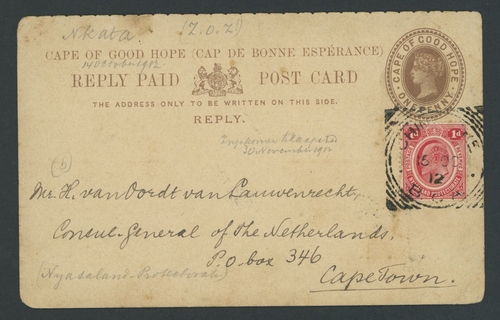 Nkata. (Z.O.Z)
CAPE OF GOOD HOPE (CAP DE BONNE ESPÉRANCE)
14 October 1912
REPLY PAID POST CARD
THE ADDRESS ONLY TO BE WRITTEN ON THIS SIDE.
REPLY.
CAPE OF GOOD HOPE
ONE PENNY
1d
12
Kaapstad
November 1912
(b)
Mr. H. van Oordt van Lauwenrecht,
Consul-General of The Netherlands,
P.O. box 346
Cape Town.
(Nyasaland-Protectorate)